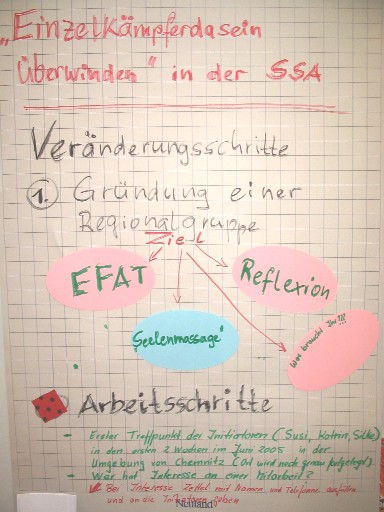 „Einzelkämpferdasein
überwinden" in der SSA
Veränderungsschritte
1. Gründung einer
Regionalgruppe
Ziel
EFAT
Reflexion
„Seelenmassage"
Was braucht Ihr ???
Arbeitsschritte
- Erster Treffpunkt der Initiatoren (Susi, Katrin, Silke)
in den ersten 2 Wochen im Juni 2005 in der
Umgebung von Chemnitz (Ort wird noch genau festgelegt).
- Wer hat Interesse an einer Mitarbeit?
Bei Interesse Zettel mit Namen und Telefonnr. ausfüllen
und an die Initiatoren geben
Neuland